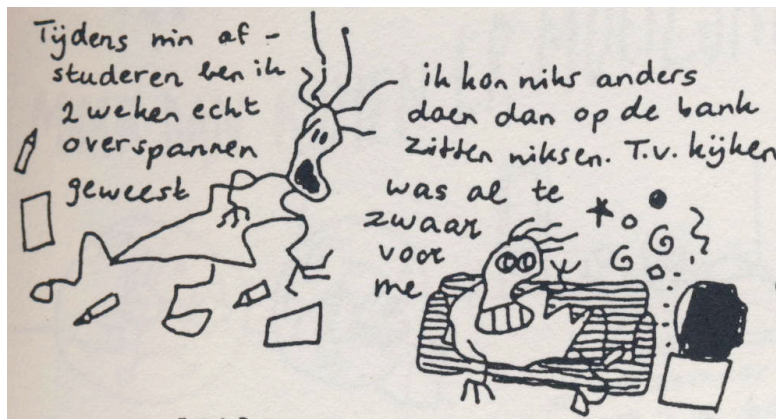 Tijdens mijn af-
studeren ben ik
2 weken echt
overspannen
geweest
ik kon niks anders
doen dan op de bank
zitten niksen. T.V. kijken
was al te
zwaar
voor
me